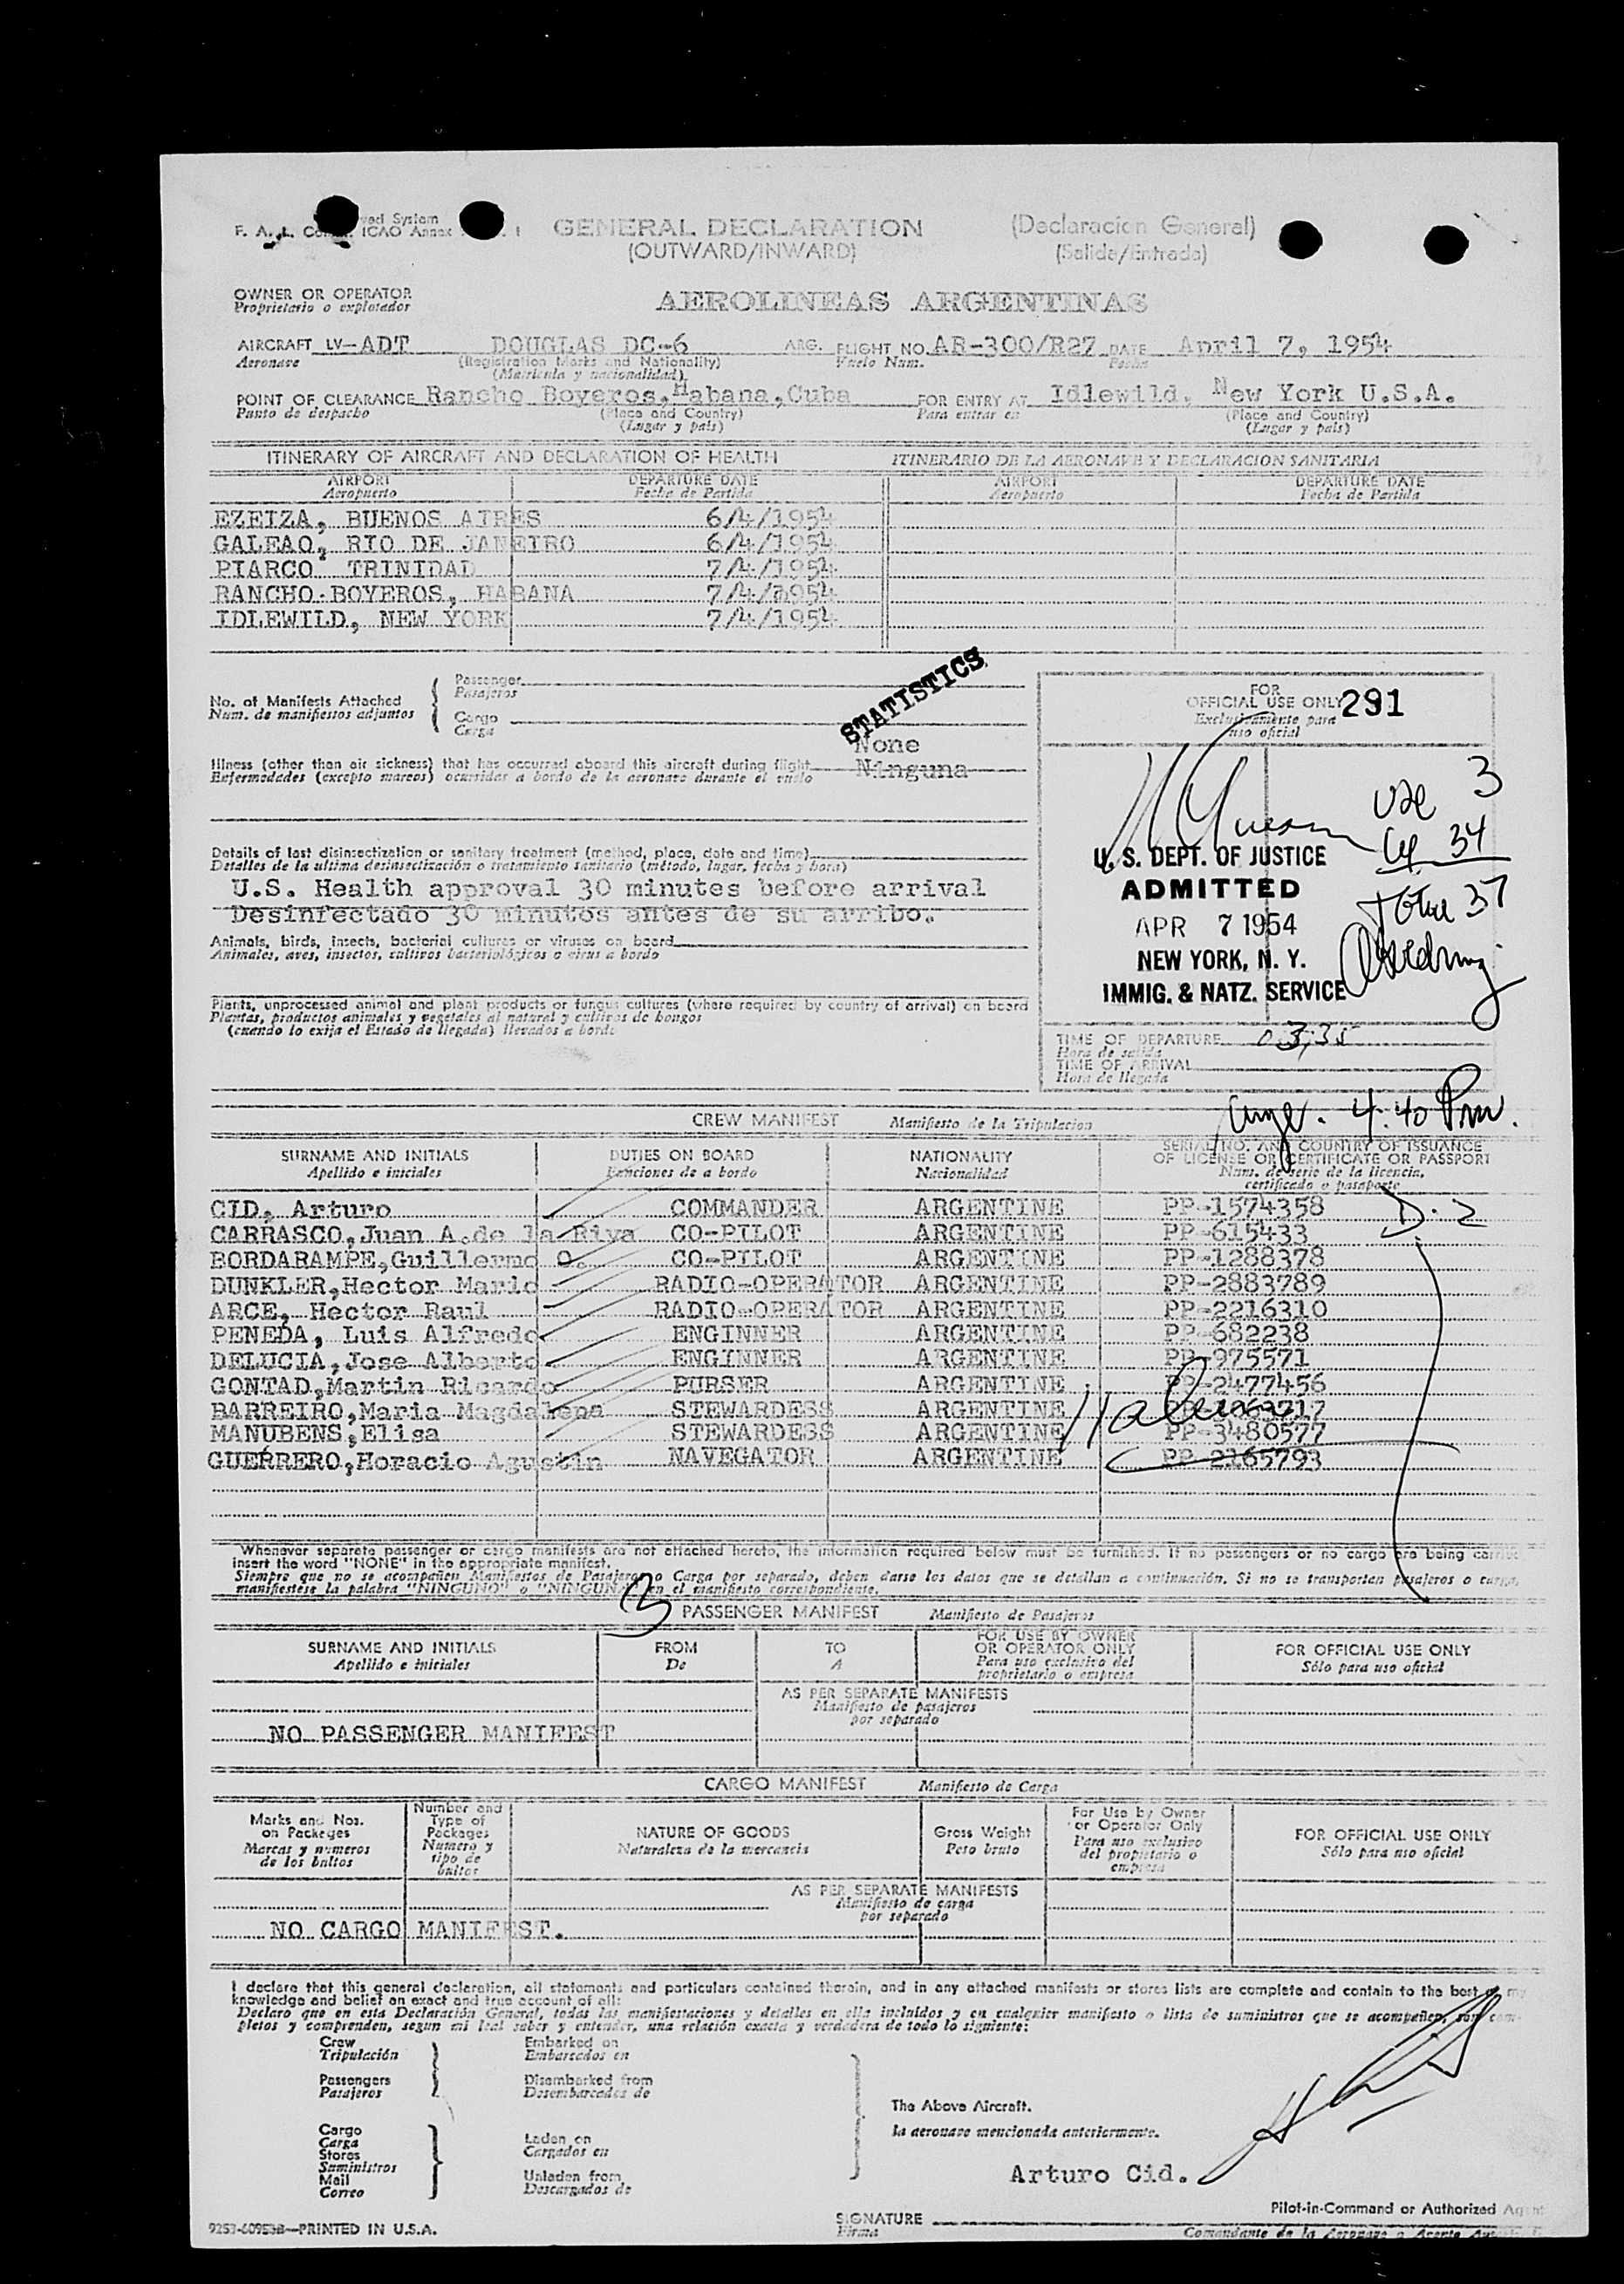 F. A. L. ved System
ICAO Annex 1
GENERAL DECLARATION (Declaracion General)
(OUTWARD/INWARD) (Salida/Entrada)
OWNER OR OPERATOR
Proprietario o explotador
AEROLINEAS ARGENTINAS
AIRCRAFT LV-ADT DOUGLAS DC-6 ARG. FLIGHT NO. AR-300/R27 DATE April 7, 1954
Aeronave (Registration Marks and Nationality) Vuelo Num. Fecha
(Matricula y nacionalidad)
POINT OF CLEARANCE Rancho Boyeros, Habana, Cuba FOR ENTRY AT Idlewild, New York U.S.A.
Punto de despacho (Place and Country) Para entrar en (Place and Country)
(Lugar y pais) (Lugar y pais)
ITINERARY OF AIRCRAFT AND DECLARATION OF HEALTH ITINERARIO DE LA AERONAVE Y DECLARACION SANITARIA
AIRPORT DEPARTURE DATE AIRPORT DEPARTURE DATE
Aeropuerto Fecha de Partida Aeropuerto Fecha de Partida
EZEIZA, BUENOS AIRES 6/4/1954
GALEAO, RIO DE JANEIRO 6/4/1954
PIARCO TRINIDAD 7/4/1954
RANCHO BOYEROS, HABANA 7/4/1954
IDLEWILD, NEW YORK 7/4/1954
No. of Manifests Attached
Num. de manifiestos adjuntos
Passenger
Pasajeros
Cargo
Carga
STATISTICS
FOR
OFFICIAL USE ONLY 291
Exclusivamente para
uso oficial
None
Illness (other than air sickness) that has occurred aboard this aircraft during flight Ninguna
Enfermedades (excepto mareos) ocurridas a bordo de la aeronave durante el vuelo
Details of last disinsectization or sanitary treatment (method, place, date and time)
Detalles de la ultima desinsectización o tratamiento sanitario (método, lugar, fecha y hora)
U.S. Health approval 30 minutes before arrival
Desinfectado 30 minutos antes de su arribo.
Animals, birds, insects, bacterial cultures or viruses on board
Animales, aves, insectos, cultivos bacteriológicos o virus a bordo
Plants, unprocessed animal and plant products or fungus cultures (where required by country of arrival) on board
Plantas, productos animales y vegetales al natural y cultivos de hongos
(cuando lo exija el Estado de llegada) llevados a bordo
3
34
Total 37
U. S. DEPT. OF JUSTICE
ADMITTED
APR 7 1954
NEW YORK, N. Y.
IMMIG. & NATZ. SERVICE
TIME OF DEPARTURE 03,35
Hora de salida
TIME OF ARRIVAL
Hora de llegada
4:40 Pm.
CREW MANIFEST Manifiesto de la Tripulacion
SURNAME AND INITIALS DUTIES ON BOARD NATIONALITY SERIAL NO. AND COUNTRY OF ISSUANCE
OF LICENSE OR CERTIFICATE OR PASSPORT
Apellido e iniciales Funciones de a bordo Nacionalidad Num. de serie de la licencia,
certificado o pasaporte
CID, Arturo COMMANDER ARGENTINE PP-1574358 D-2
CARRASCO, Juan A.de la Riva CO-PILOT ARGENTINE PP-615433
BORDARAMPE, Guillermo O. CO-PILOT ARGENTINE PP-1288378
DUNKLER, Hector Mario RADIO-OPERATOR ARGENTINE PP-2883789
ARCE, Hector Raul RADIO-OPERATOR ARGENTINE PP-2216310
PENEDA, Luis Alfredo ENGINNER ARGENTINE PP-682238
DELUCIA, Jose Alberto ENGINNER ARGENTINE PP-975571
GONTAD, Martin Ricardo PURSER ARGENTINE PP-2477456
BARREIRO, Maria Magdalena STEWARDESS ARGENTINE
MANUBENS, Elisa STEWARDESS ARGENTINE PP-3480577
GUERRERO, Horacio Agustin NAVEGATOR ARGENTINE PP-2165793
Whenever separate passenger or cargo manifests are not attached hereto, the information required below must be furnished. If no passengers or no cargo are being carried
insert the word "NONE" in the appropriate manifest.
Siempre que no se acompañen Manifiestos de Pasajeros o Carga por separado, deben darse los datos que se detallan a continuación. Si no se transportan pasajeros o carga,
manifiestese la palabra "NINGUNO" o "NINGUNA" en el manifiesto correspondiente.
3 PASSENGER MANIFEST Manifiesto de Pasajeros
SURNAME AND INITIALS FROM TO FOR USE BY OWNER
OR OPERATOR ONLY FOR OFFICIAL USE ONLY
Apellido e iniciales De A Para uso exclusivo del
propietario o empresa Sólo para uso oficial
AS PER SEPARATE MANIFESTS
Manifiesto de pasajeros
por separado
NO PASSENGER MANIFEST
CARGO MANIFEST Manifiesto de Carga
Marks and Nos.
on Packages
Marcas y numeros
de los bultos
Number and
Type of
Packages
Numero y
tipo de
bultos
NATURE OF GOODS
Naturaleza de la mercancia
Gross Weight
Peso bruto
For Use by Owner
or Operator Only
Para uso exclusivo
del propietario o
empresa
FOR OFFICIAL USE ONLY
Sólo para uso oficial
AS PER SEPARATE MANIFESTS
Manifiesto de carga
por separado
NO CARGO MANIFEST.
I declare that this general declaration, all statements and particulars contained therein, and in any attached manifests or stores lists are complete and contain to the best of my
knowledge and belief an exact and true account of all:
Declaro que en esta Declaración General, todas las manifestaciones y detalles en ella incluidos y en cualquier manifiesto o lista de suministros que se acompañen, son com-
pletos y comprenden, segun mi leal saber y entender, una relación exacta y verdadera de todo lo siguiente:
Crew
Tripulación
Passengers
Pasajeros
Embarked on
Embarcados en
Disembarked from
Desembarcados de
Cargo
Carga
Stores
Suministros
Mail
Correo
Laden on
Cargados en
Unladen from
Descargados de
The Above Aircraft.
la aeronave mencionada anteriormente.
Arturo Cid.
SIGNATURE
Firma
Pilot-in-Command or Authorized Agent
Comandante de la Aeronave o Agente
9253-60953B—PRINTED IN U.S.A.